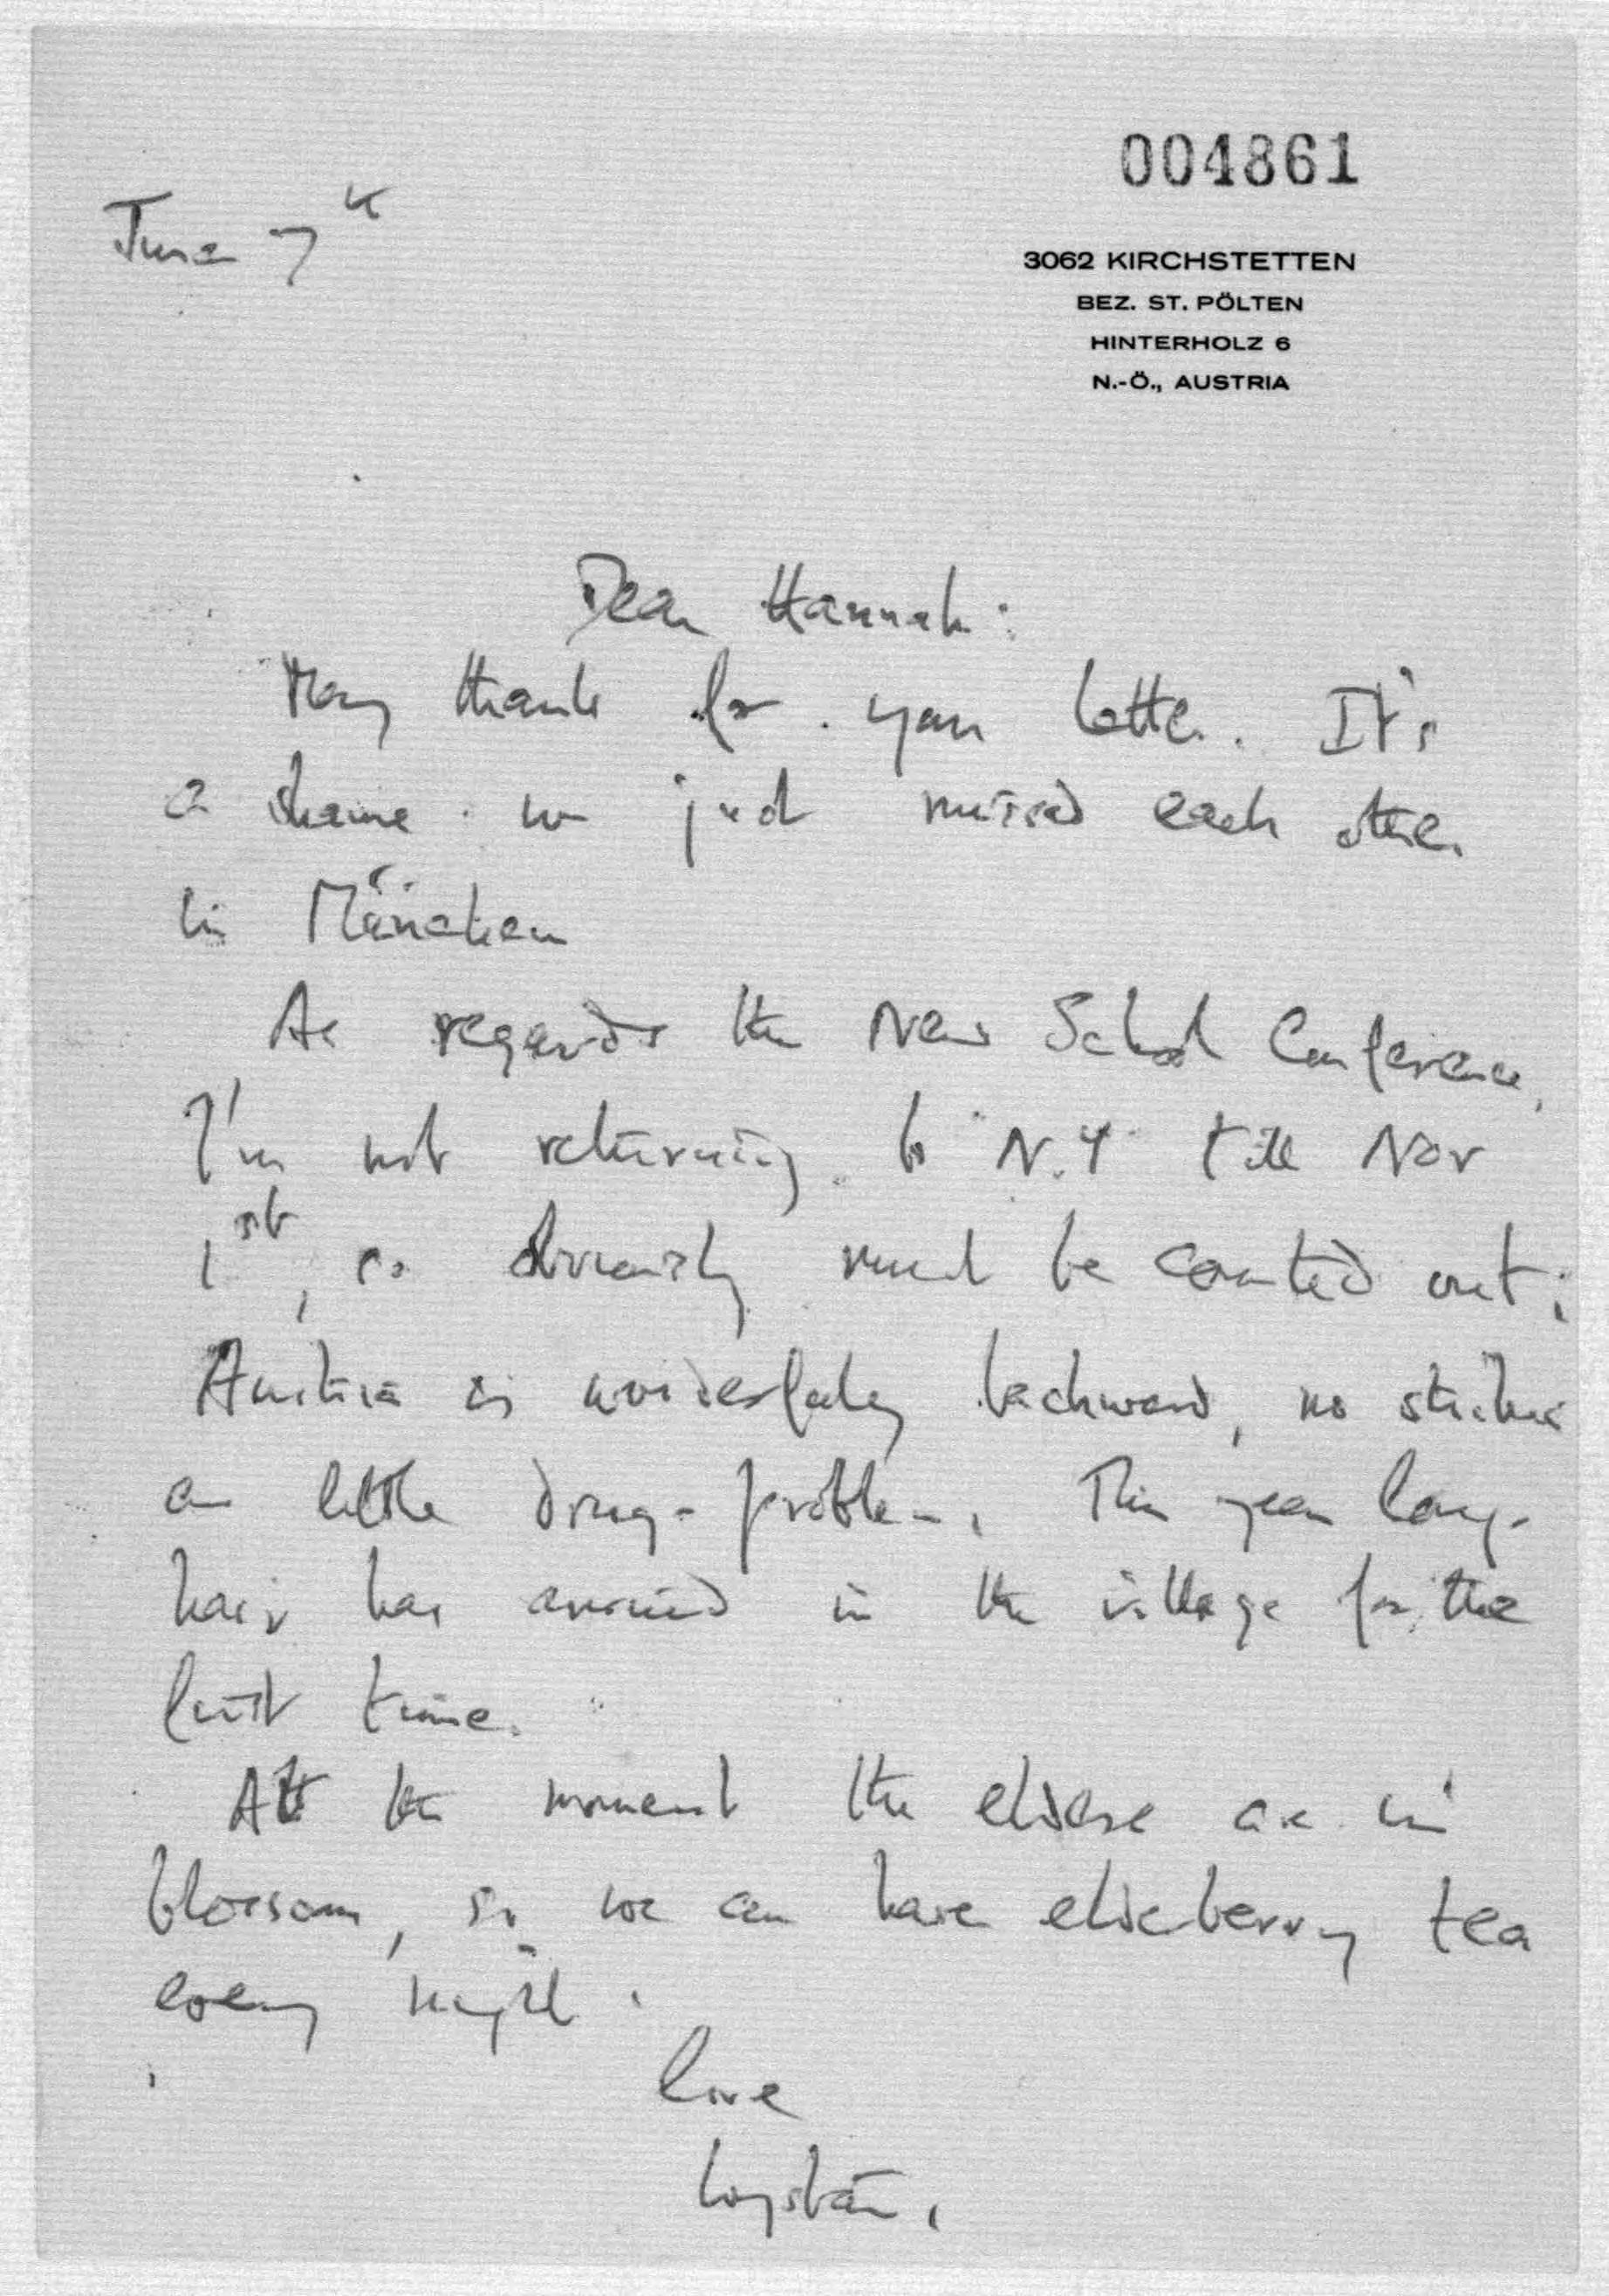 004861
June 7th
3062 KIRCHSTETTEN
BEZ. ST. PÖLTEN
HINTERHOLZ 6
N.-Ö., AUSTRIA
Dear Hannah:
Many thanks for your letter. It's
a shame we just missed each other
in München
As regards the New School Conference,
I'm not returning to N.Y till Nov
1st, so obviously must be counted out.
Austria is wonderfully backward, no strikes
or little drug-problem. This year long-
hair has arrived in the village for the
first time.
At the moment the elders are in
blossom, so we can have elderberry tea
every night.
love
Wystan.